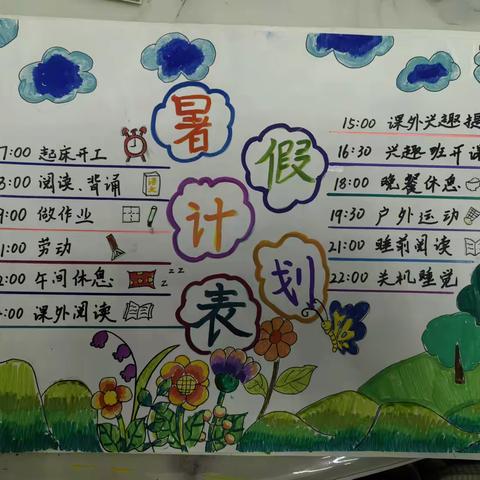 暑
假
计
划
表
7:00 起床开工
8:00 阅读、背诵
9:00 做作业
1:00 劳动
2:00 午间休息
zz
:00 课外阅读
15:00 课外兴趣提
16:30 兴趣班开课
18:00 晚餐休息
19:30 户外运动
21:00 睡前阅读
22:00 关机睡觉